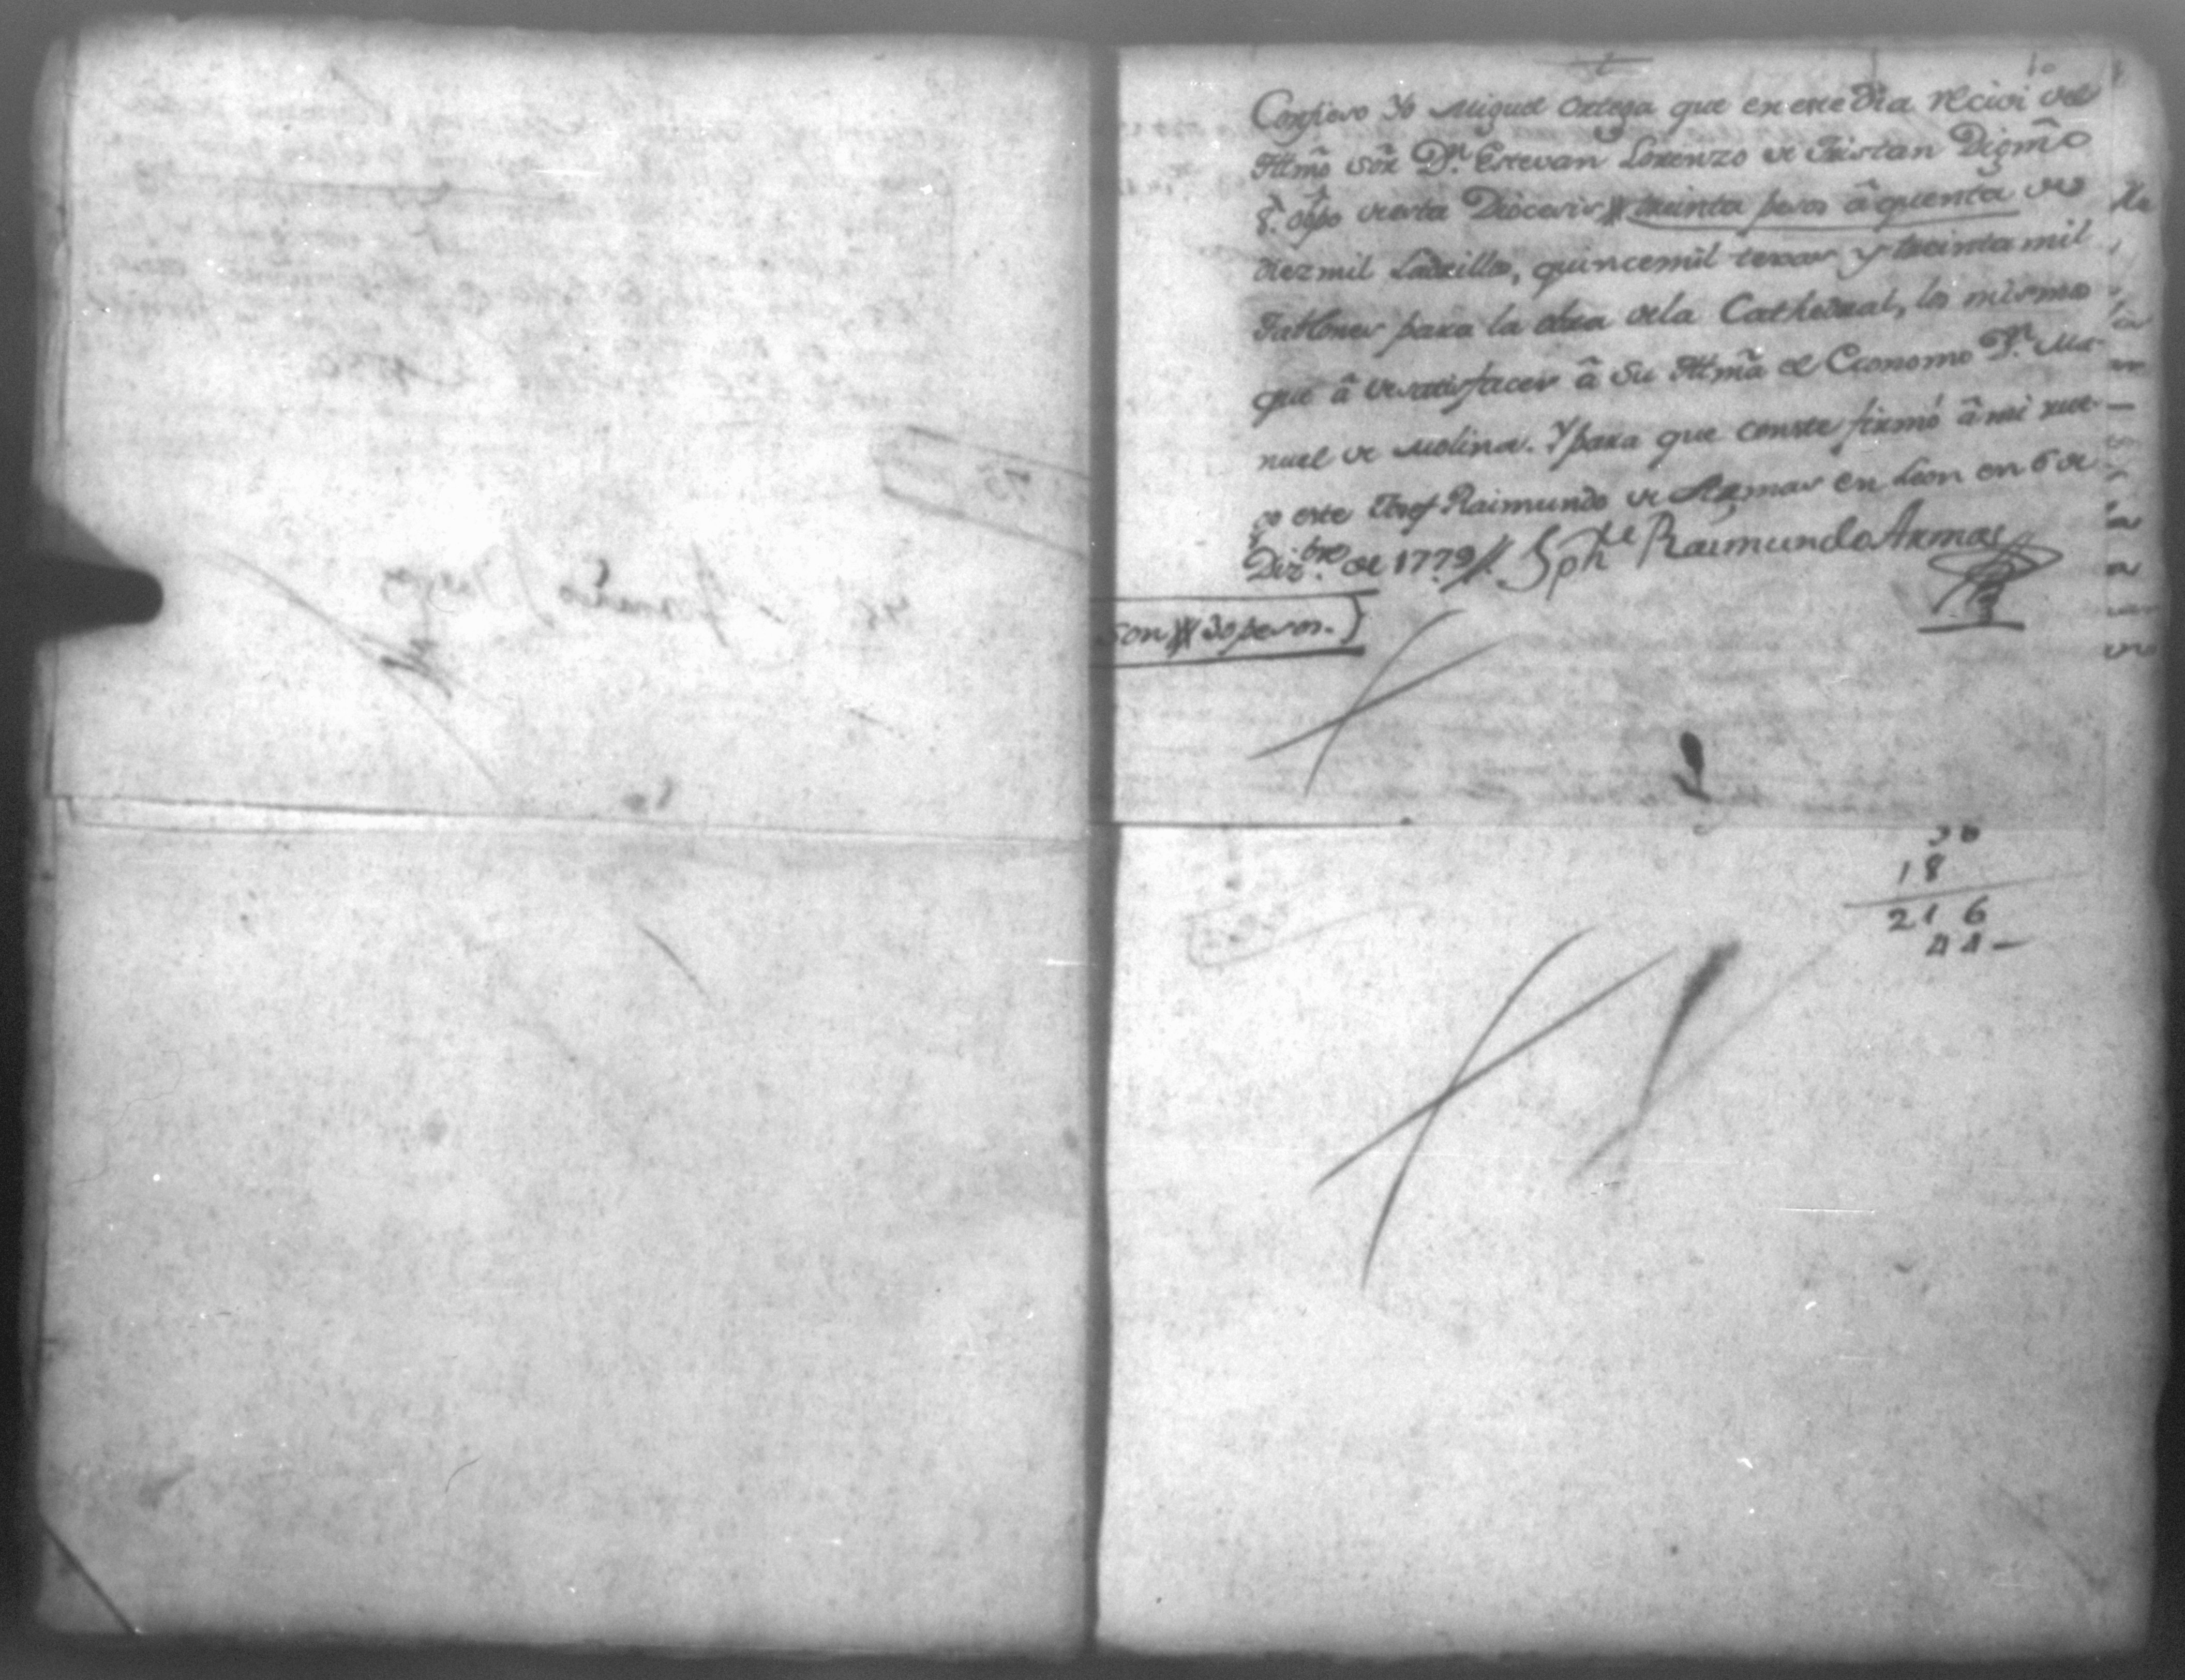 Confieso Yo Miguel Ortega que en este dia recivi del
Illmô Sôr Dn. Estevan Lorenzo de Tristan Digmô
obpo de esta Diocesis treinta pesos â quenta de
diez mil Ladrillos, quincemil texas y treinta mil
Tablones para la obra de la Cathedral, los mismos
que â de satisfacer â Su Illmâ el Economo Dn. Ma-
nuel de Molina. Y para que conste firmó â mi rue-
go este Josef Raimundo de Armas en Leon en 6 de
Dizbre. de 1779 Jph de Raimundo Armas
Son 30 pesos.
30
18
216
44—